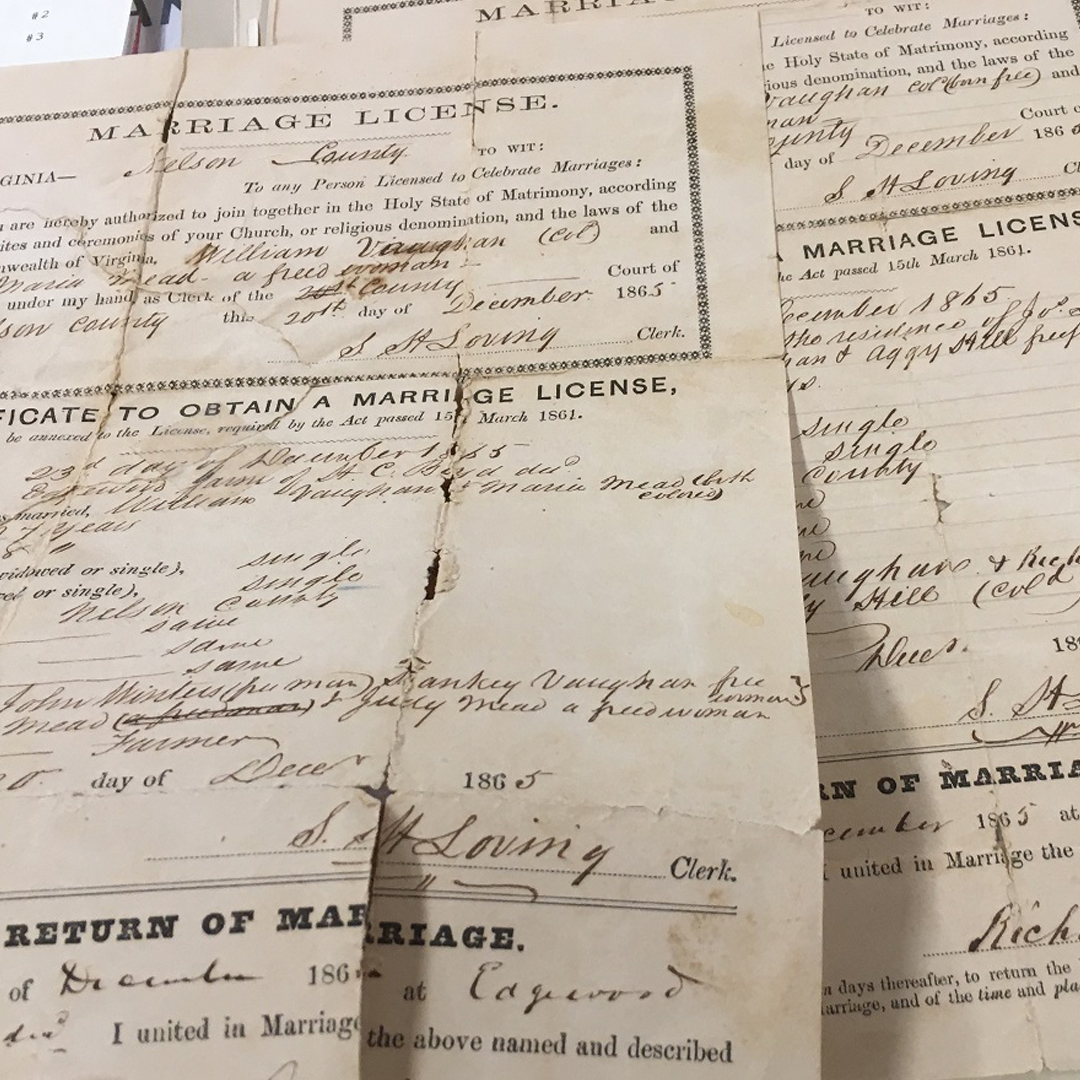 #2
#3
MARRIAGE LICENSE.
GINIA— Nelson County. TO WIT:
To any Person Licensed to Celebrate Marriages:
are hereby authorized to join together in the Holy State of Matrimony, according
ites and ceremonies of your Church, or religious denomination, and the laws of the
nwealth of Virginia, William Vaughan (Col) and
Maria Mead - a freed woman -
under my hand, as Clerk of the County Court of
lson County this 20th day of December 1865
S H Loving Clerk.
FICATE TO OBTAIN A MARRIAGE LICENSE,
be annexed to the License, required by the Act passed 15th March 1861.
23d day of December 1865
Edgewood farm of H. C. Boyd decd
s married, William Vaughan & Maria Mead (both
colored)
7 years
8 "
widowed or single), single
ed or single), single
Nelson County
same
same
same
John Winters (free man) & Frankey Vaughan free
woman }
Mead (a freedman) & Judy Mead a freedwoman
Farmer
day of Decr 1865
S. H Loving Clerk.
RETURN OF MARRIAGE.
of December 186 at Edgewood
decd I united in Marriage the above named and described
MARRIA
TO WIT:
Licensed to Celebrate Marriages:
e Holy State of Matrimony, according
ious denomination, and the laws of the
Vaughan col (born free) and
man
County Court o
day of December 186
S H Loving Cl
A MARRIAGE LICENS
he Act passed 15th March 1861.
December 1865
the residence of Jo.
an & Aggy Hill free
single
single
County
Vaughan &
Hill (cold
Decr. 18
S. H
RN OF MARRIA
cember 1865 at
I united in Marriage the
Rich
n days thereafter, to return the
arriage, and of the time and pla